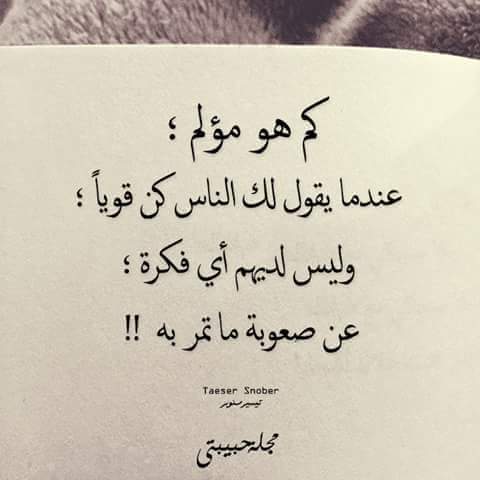 كم هو مؤلم ؛
عندما يقول لك الناس كن قوياً ؛
وليس لديهم أي فكرة ؛
عن صعوبة ما تمر به !!
Taeser Snober
تيسير صنوبر
مجلة حبيبتي